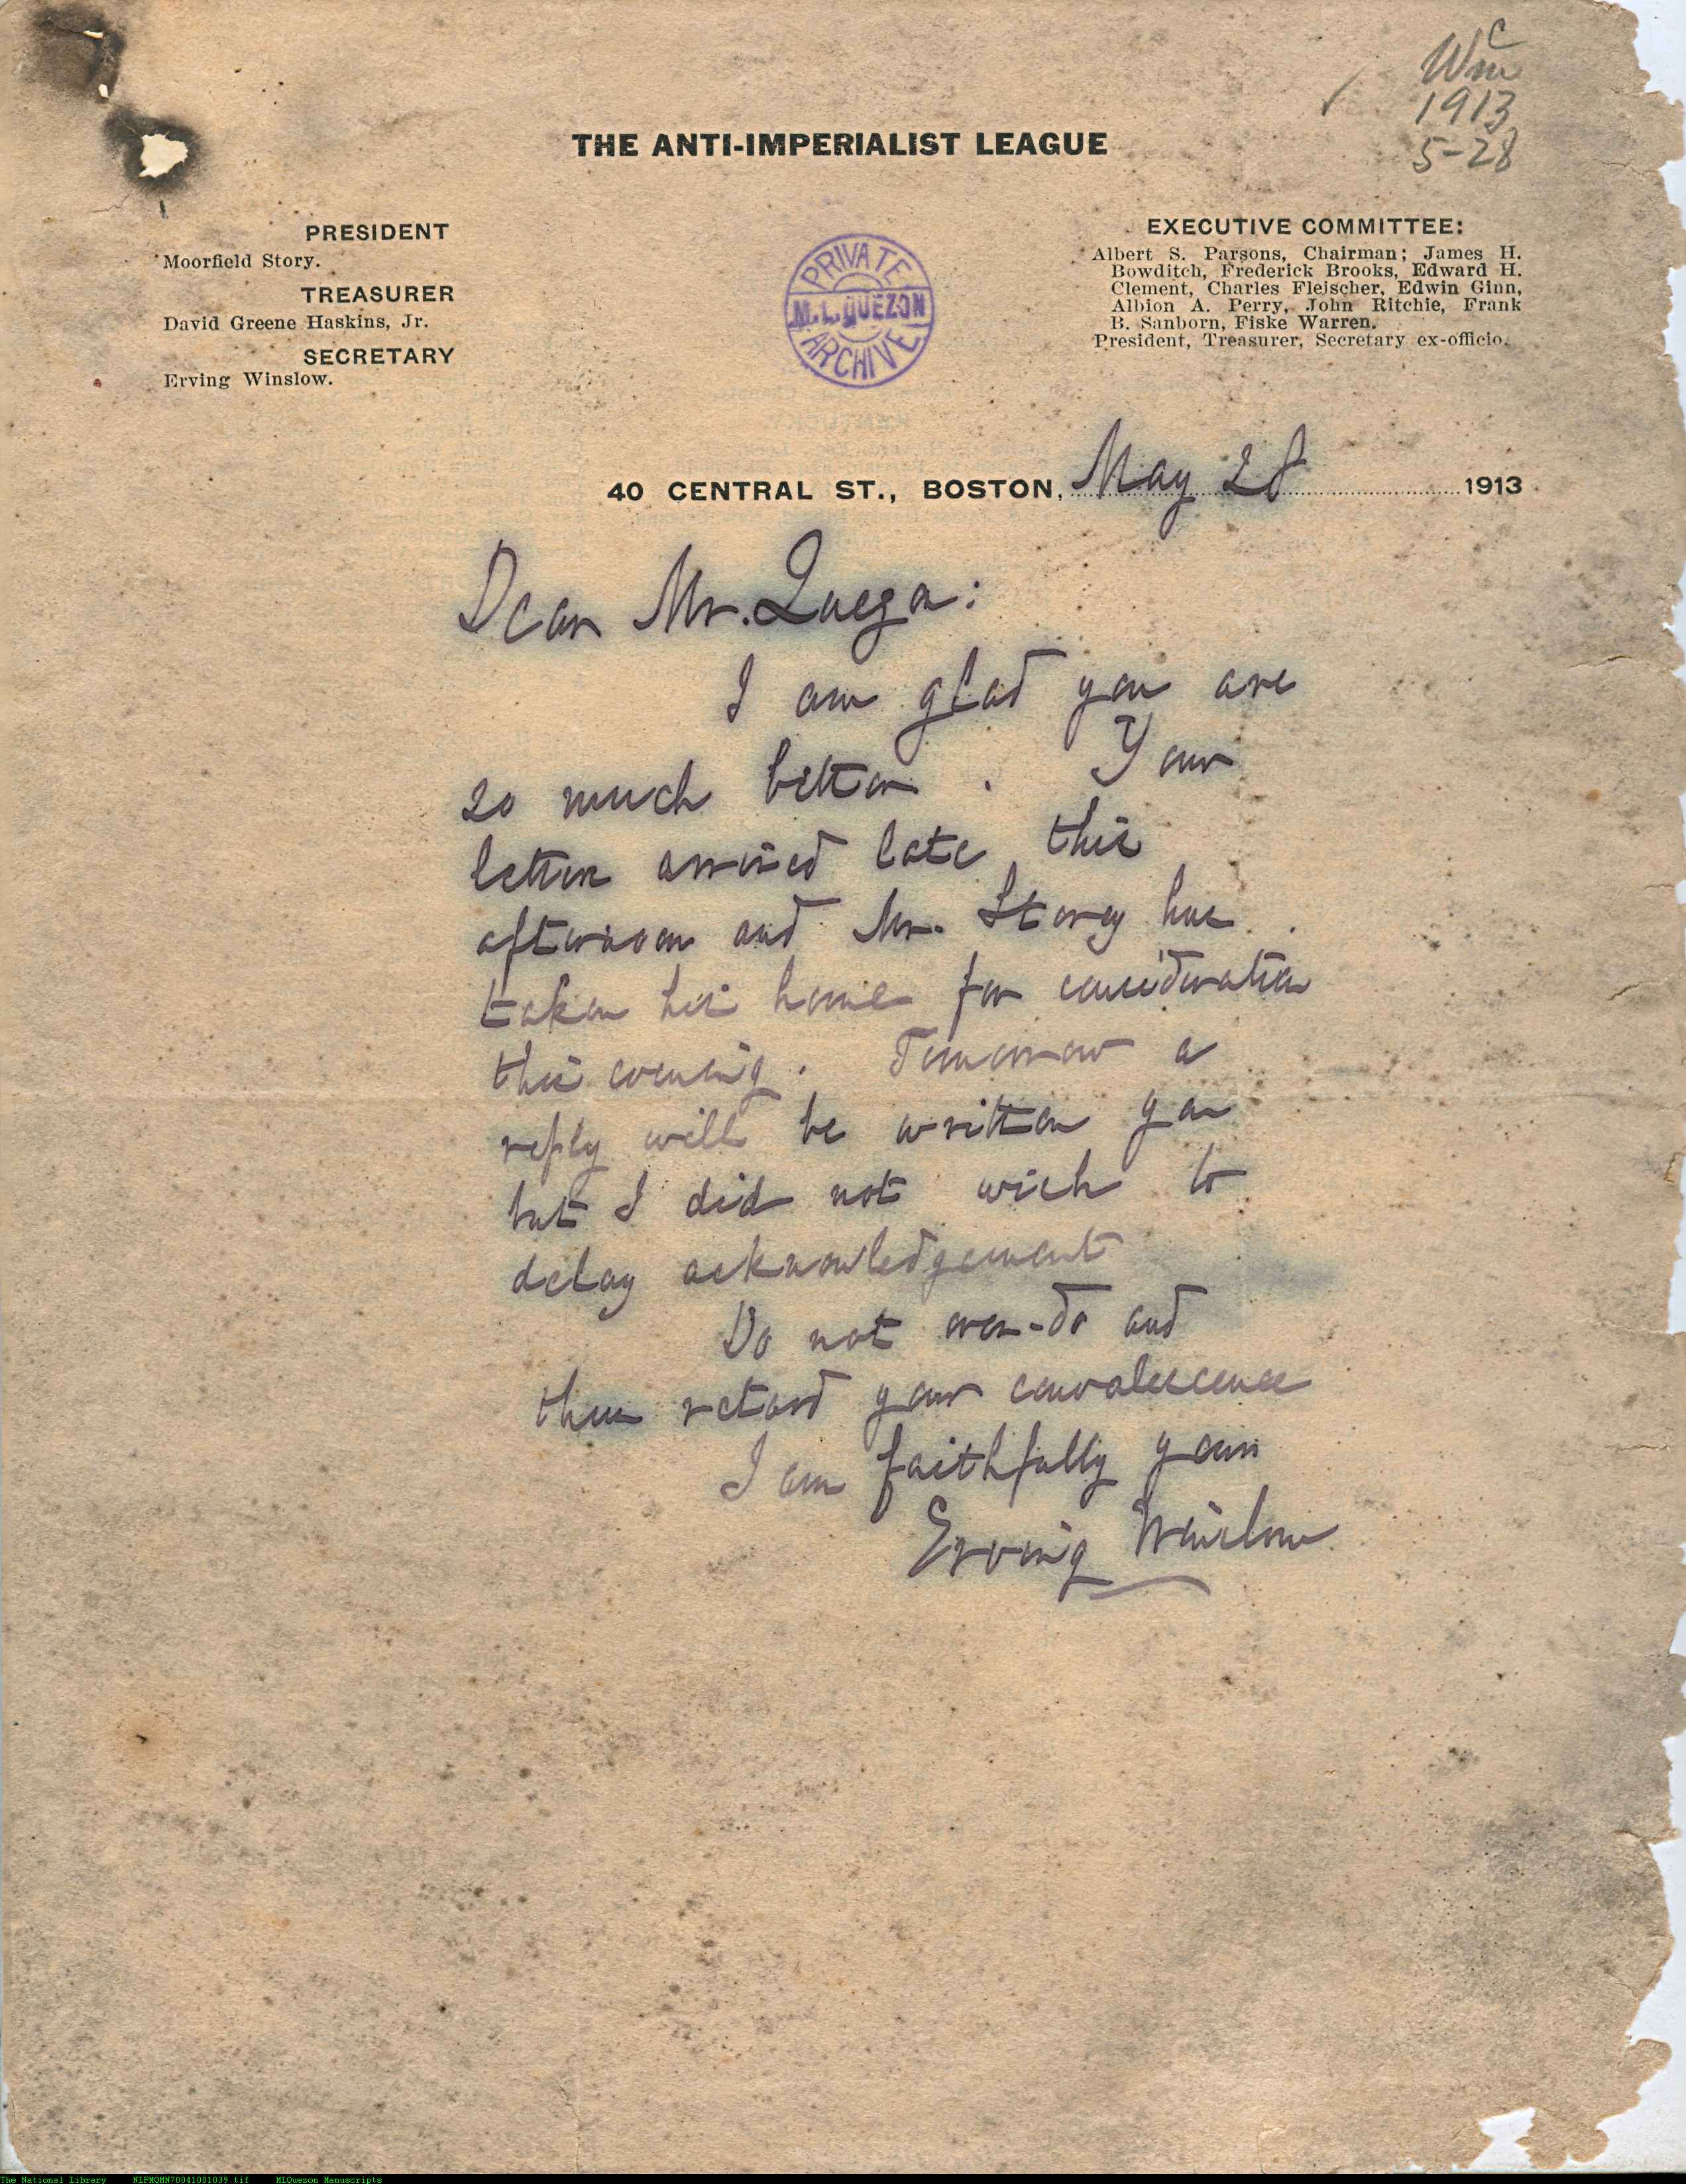 Wm C
1913
5-28
THE ANTI-IMPERIALIST LEAGUE
PRESIDENT
Moorfield Story.
TREASURER
David Greene Haskins, Jr.
SECRETARY
Erving Winslow.
PRIVATE
M.L.QUEZON
ARCHIVE
EXECUTIVE COMMITTEE:
Albert S. Parsons, Chairman; James H.
Bowditch, Frederick Brooks, Edward H.
Clement, Charles Fleischer, Edwin Ginn,
Albion A. Perry, John Ritchie, Frank
B. Sanborn, Fiske Warren.
President, Treasurer, Secretary ex-officio.
40 CENTRAL ST., BOSTON, May 28 1913
Dear Mr. Quezon:
I am glad you are
so much better. Your
letter arrived late this
afternoon and Mr. Storey has
taken his home for consideration
this evening. Tomorrow a
reply will be written you
but I did not wish to
delay acknowledgement
Do not over-do and
thus retard your convalescence
I am faithfully yours
Erving Winslow
The National Library NLPMQMN70041001039.tif MLQuezon Manuscripts